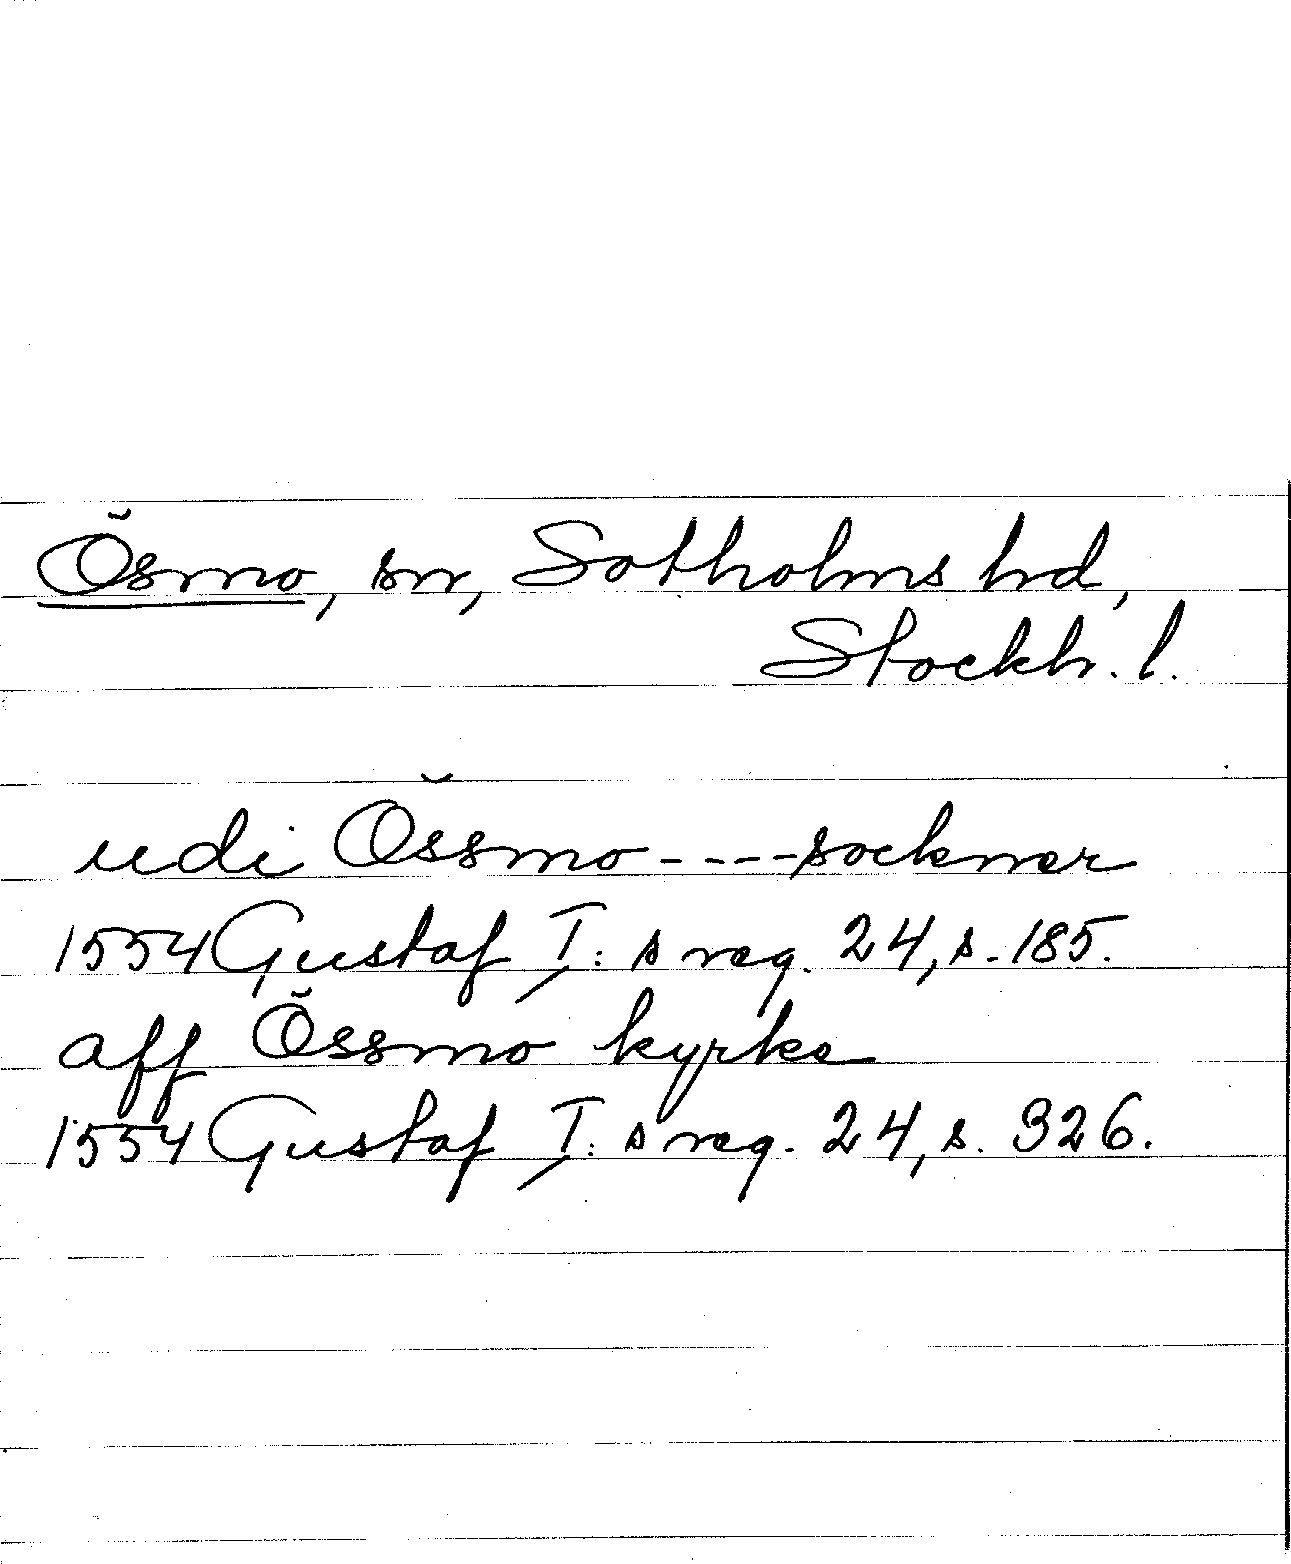 Ösmo, sn, Sotholms hd,
Stockh. l.
udi Össmo----sockner
1554 Gustaf I:s reg. 24, s. 185.
aff Össmo kyrke
1554 Gustaf I:s reg. 24, s. 326.